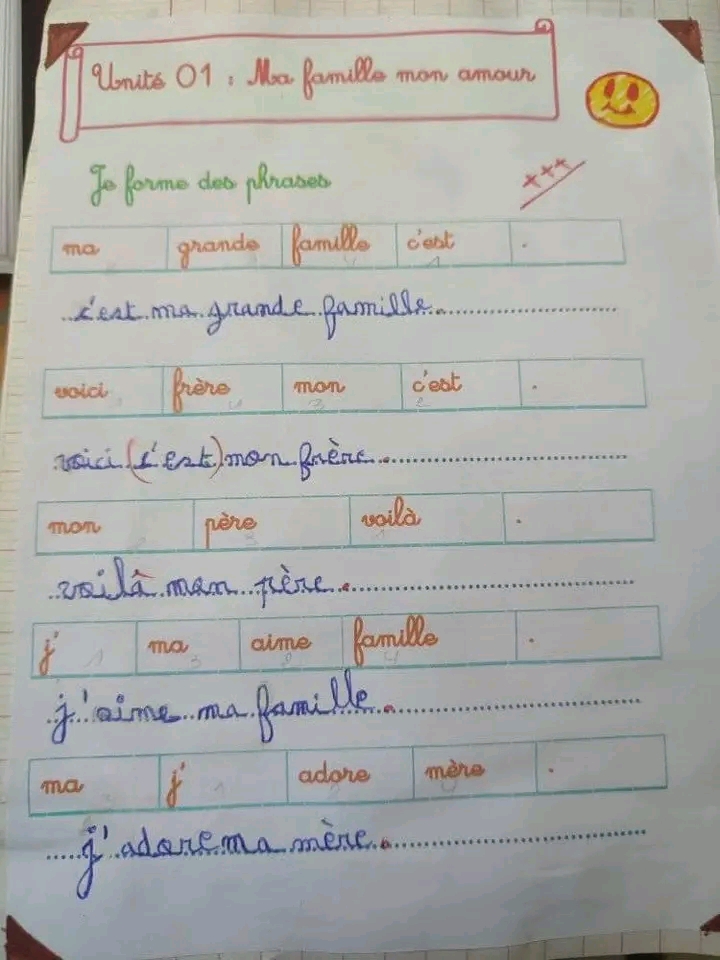 Unité 01 : Ma famille mon amour
Je forme des phrases
+++
ma grande famille c'est .
c'est ma grande famille.
voici frère mon c'est .
voici (c'est) mon frère.
mon père voilà .
voilà mon père.
j' ma aime famille .
j'aime ma famille.
ma j' adore mère .
j'adore ma mère.